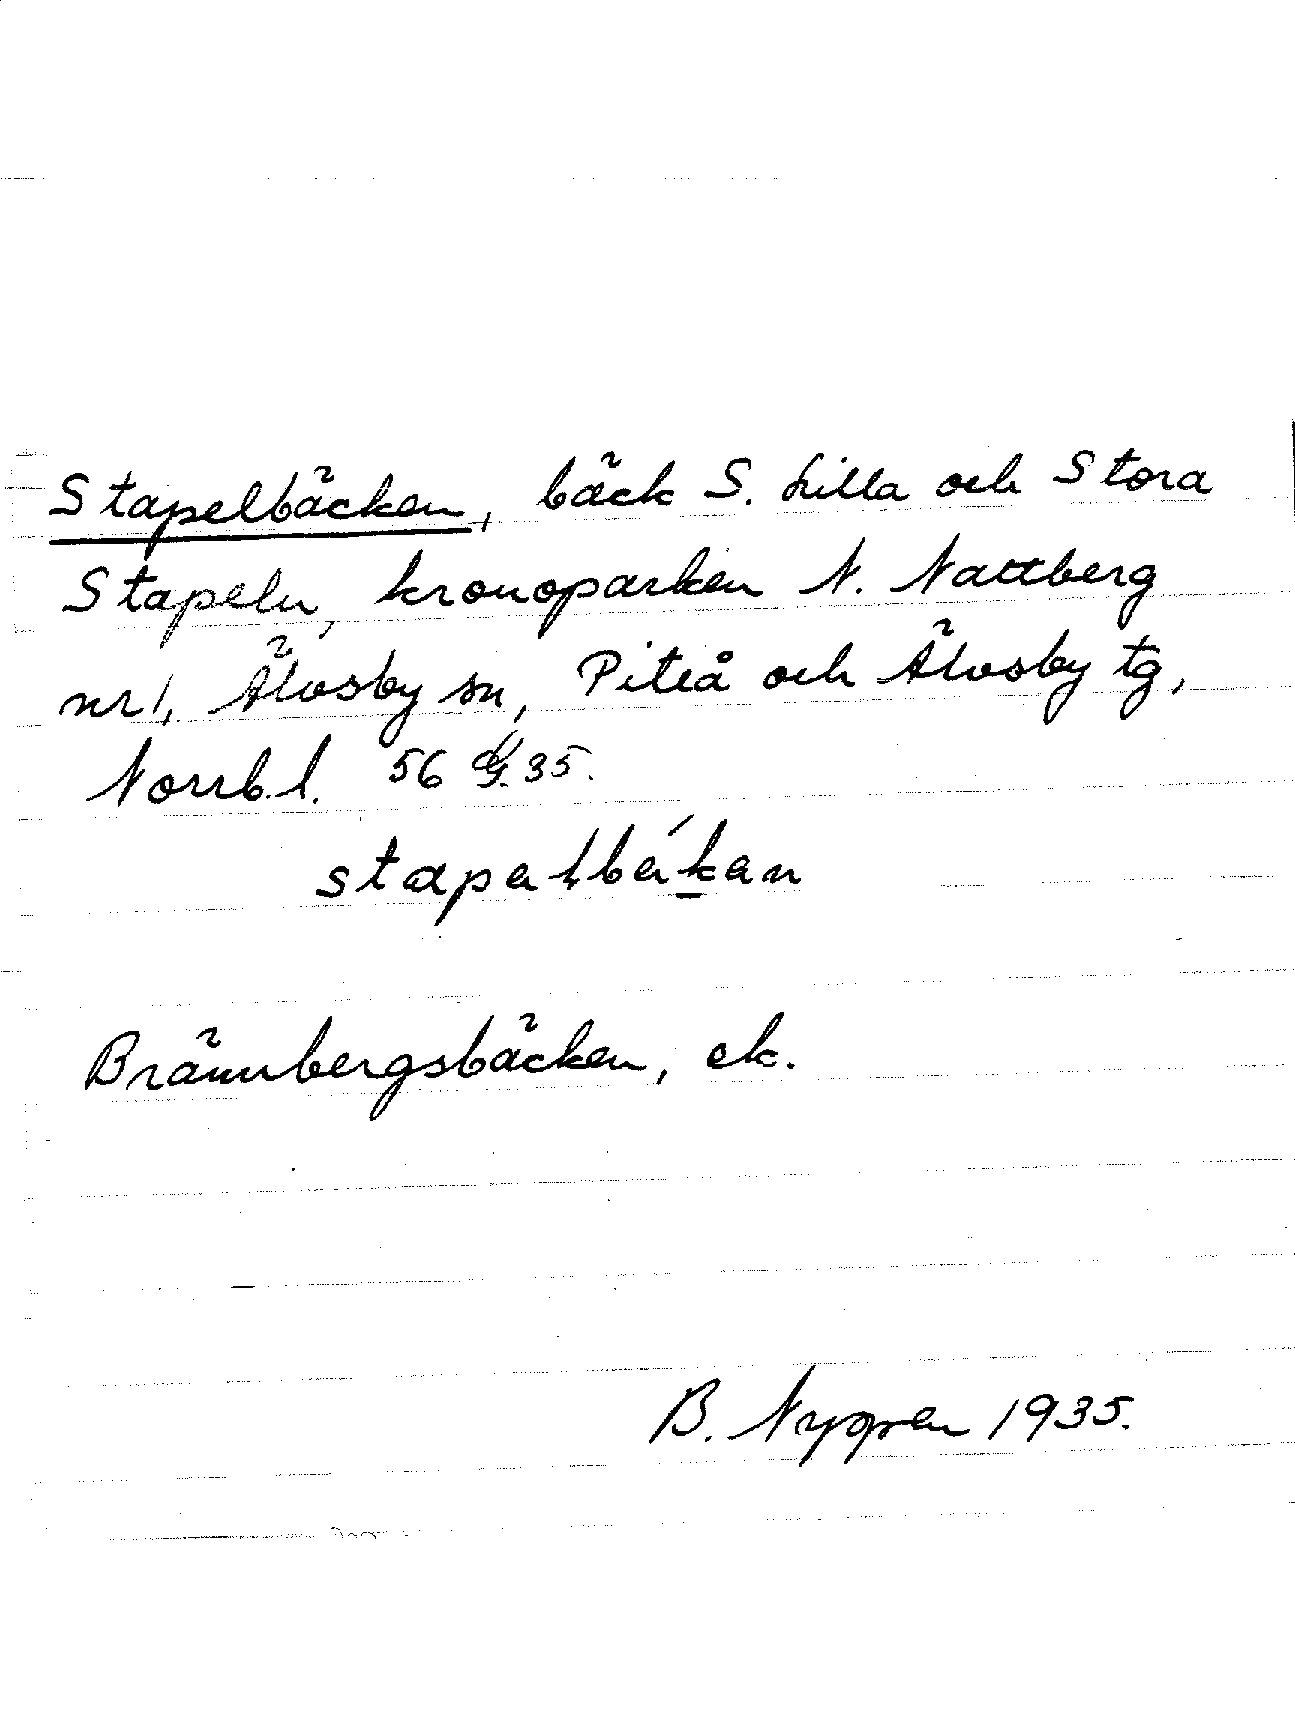 Stapelbäcken, bäck S. Lilla och Stora
Stapeln, kronoparken N. Nattberg
nr 1, Älvsby sn, Piteå och Älvsby tg,
Norrb. l. 56 35.
Brännbergsbäcken, ek.
B. Nygren 1935.